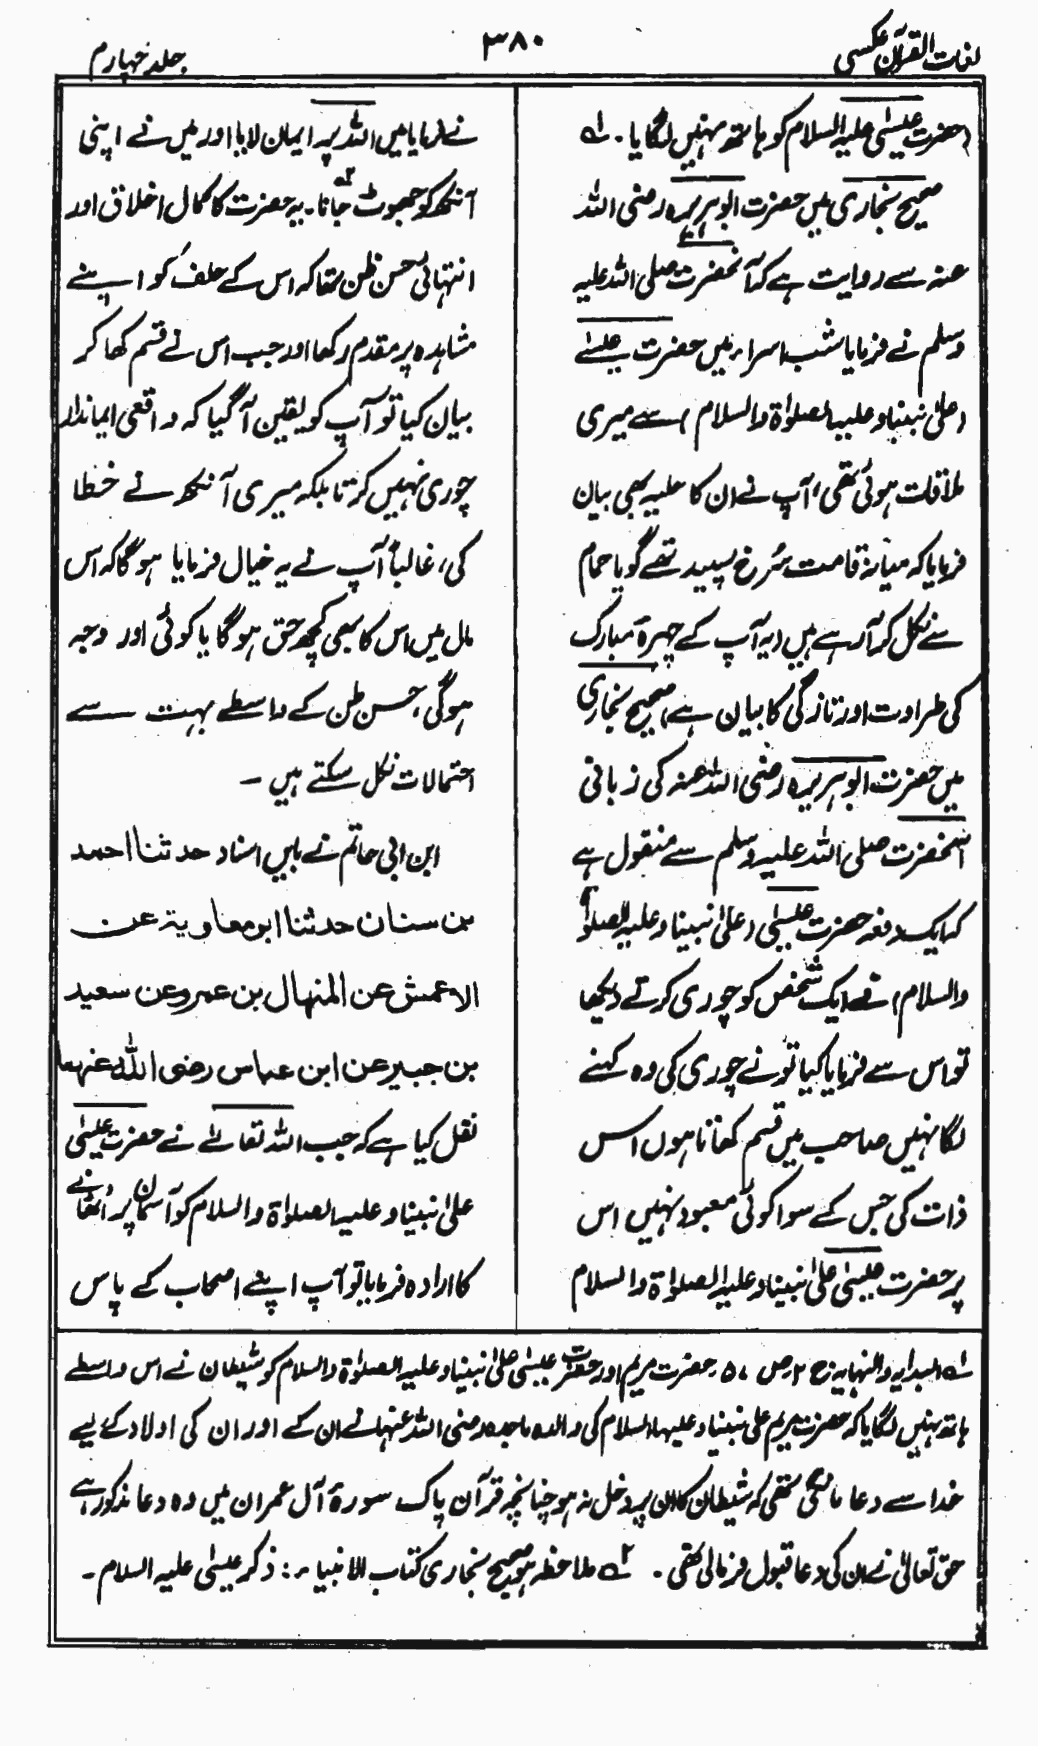 لغات القرآن عکسی
۳۸۰
جلد چہارم
(حضرت عیسٰی علیہ السلام کو ہاتھ نہیں لگایا۔ لہ
صحیح بخاری میں حضرت ابوہریرہ رضی اللہ
عنہ سے روایت ہے کہ آنحضرت صلی اللہ علیہ
وسلم نے فرمایا شب اسراء میں حضرت عیسٰے
(علیٰ نبینا و علیہ الصلوٰۃ والسلام) سے میری
ملاقات ہوئی تھی، آپ نے ان کا حلیہ بھی بیان
فرمایا کہ میانہ قامت سُرخ سپید تھے گویا حمام
سے نکل کر آرہے ہیں (یہ آپ کے چہرۂ مبارک
کی طراوت اور تازگی کا بیان ہے) صحیح بخاری
میں حضرت ابوہریرہ رضی اللہ عنہ کی زبانی
آنحضرت صلی اللہ علیہ وسلم سے منقول ہے
کہ ایک دفعہ حضرت عیسٰی (علیٰ نبینا و علیہ الصلوٰۃ
والسلام) نے ایک شخص کو چوری کرتے دیکھا
تو اس سے فرمایا کیا تُو نے چوری کی وہ کہنے
لگا نہیں صاحب میں قسم کھاتا ہوں اس
ذات کی جس کے سوا کوئی معبود نہیں اس
پر حضرت عیسٰی علیٰ نبینا و علیہ الصلوٰۃ والسلام
نے فرمایا میں اللہ پر ایمان لایا اور میں نے اپنی
آنکھ کو جھوٹ جانا۔ ۲ہ یہ حضرت کا کمال اخلاق اور
انتہائی حسن ظن تھا کہ اس کے حلف کو اپنے
مشاہدہ پر مقدم رکھا اور جب اس نے قسم کھا کر
بیان کیا تو آپ کو یقین آگیا کہ واقعی ایماندار
چوری نہیں کرتا بلکہ میری آنکھ نے خطا
کی، غالباً آپ نے یہ خیال فرمایا ہوگا کہ اس
مال میں اس کا بھی کچھ حق ہوگا یا کوئی اور وجہ
ہوگی، حسن ظن کے واسطے بہت سے
احتمالات نکل سکتے ہیں ۔
ابن ابی حاتم نے بایں اسناد حدثنا احمد
بن سنان حدثنا ابو معاویة عن
الاعمش عن المنهال بن عمرو عن سعید
بن جبیر عن ابن عباس رضی اللّٰہ عنہما
نقل کیا ہے کہ جب اللہ تعالےٰ نے حضرت عیسٰی
علیٰ نبینا و علیہ الصلوٰۃ والسلام کو آسمان پر اُٹھانے
کا ارادہ فرمایا تو آپ اپنے اصحاب کے پاس
لہ البدایہ والنہایہ ج ۲ ص ۵۷ حضرت مریم اور حضرت عیسٰی علیٰ نبینا و علیہ الصلوٰۃ والسلام کو شیطان نے اس واسطے
ہاتھ نہیں لگایا کہ حضرت مریم علی نبینا و علیہا السلام کی والدہ ماجدہ رضی اللہ عنہا نے ان کے اور ان کی اولاد کے لیے
خدا سے دعا مانگی تھی کہ شیطان کا ان پر دخل نہ ہو چنانچہ قرآن پاک سورۂ آل عمران میں وہ دعا مذکور ہے
حق تعالیٰ نے ان کی دعا قبول فرمالی تھی ۔ ۲ہ ملاحظہ ہو صحیح بخاری کتاب الانبیاء : ذکر عیسٰی علیہ السلام ۔